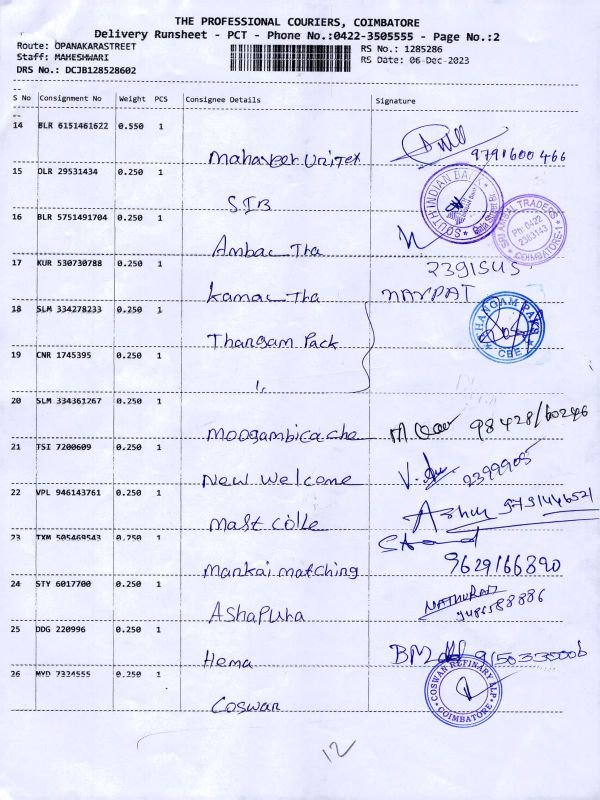 THE PROFESSIONAL COURIERS, COIMBATORE
Delivery Runsheet - PCT - Phone No.:0422-3505555 - Page No.:2
Route: OPANAKARASTREET
RS No.: 1285286
Staff: MAHESHWARI
RS Date: 06-Dec-2023
DRS No.: DCJB128528602
S No Consignment No Weight PCS Consignee Details Signature
14 BLR 6151461622 0.550 1
Mahaveer Unitex 9791600466
15 DLR 29531434 0.250 1
SIB
SOUTH INDIAN BANK
SRI AMBAL TRADERS
Ph: 0422
2383143
COIMBATORE-1
16 BLR 5751491704 0.250 1
Ambac Tha
17 KUR 530730788 0.250 1
Kamac Tha
NAYPAT
18 SLM 334278233 0.250 1
Thangam Pack
THANGAM PAKS
CBE
19 CNR 1745395 0.250 1
20 SLM 334361267 0.250 1
Moogambica che 98428/60246
21 TSI 7200609 0.250 1
New Welcome 2399905
22 VPL 946143761 0.250 1
Mast Colle
23 TXM 505469543 0.250 1
Mankai matching 9629166890
24 STY 6017700 0.250 1
Ashapura
25 DDG 220996 0.250 1
Hema
26 MYD 7324555 0.250 1
Coswan
COSWAN REFINARY LLP
COIMBATORE
12